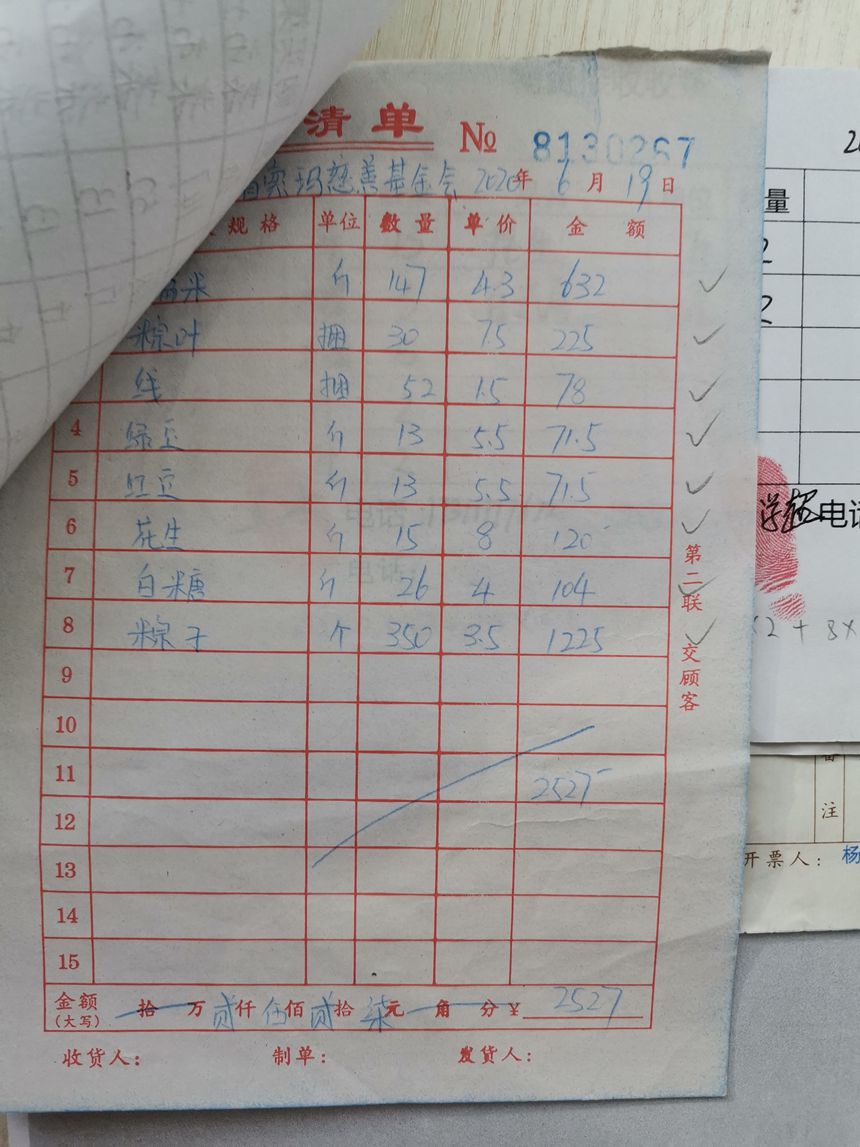 清单 № 8130267
索玛慈善基金会 2020年 6月 19日
规格 单位 数量 单价 金额
米 斤 147 4.3 632
粽叶 捆 30 7.5 225
线 捆 52 1.5 78
4 绿豆 斤 13 5.5 71.5
5 红豆 斤 13 5.5 71.5
6 花生 斤 15 8 120
7 白糖 斤 26 4 104
8 粽子 个 350 3.5 1225
9
10
11 2527
12
13
14
15
金额(大写) 拾 万 贰仟 伍佰 贰拾 柒元 角 分 ¥ 2527
收货人: 制单: 发货人:
第二联 交顾客
量
2
2
电话
×2 + 8×
备注
开票人: 杨